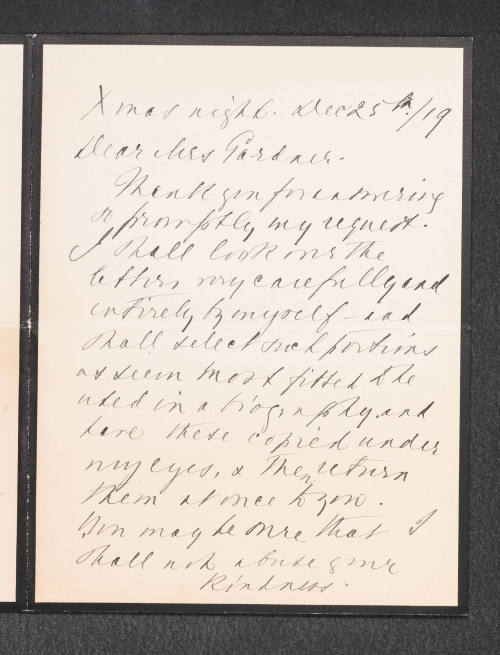 Xmas night. Dec 25th/19
Dear Mrs Gardner.
Thank you for answering
so promptly my request.
I shall look over the
letters very carefully and
entirely by myself - and
shall select such portions
as seem most fitted to be
used in a biography. and
have these copied under
my eyes, & then return
them at once to you.
You may be sure that I
shall not abuse your
kindness.